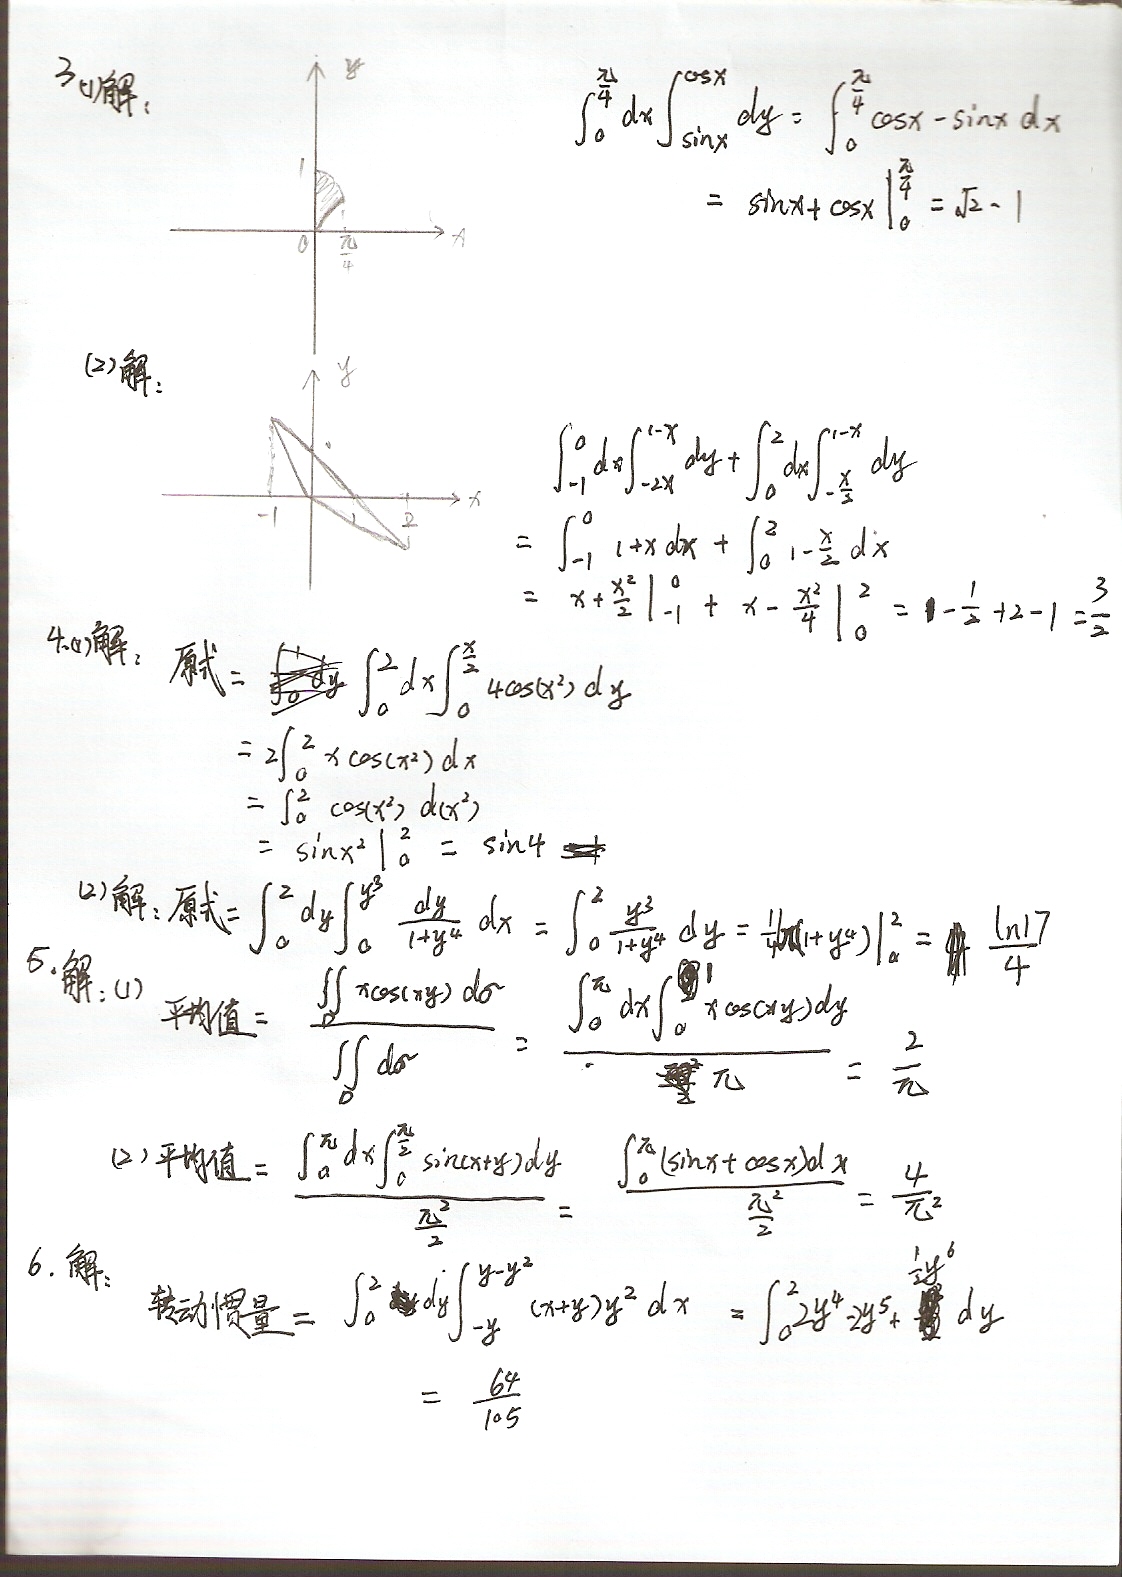 3 (1) 解:
y
1
0 π/4 x
∫_0^{π/4} dx ∫_{sinx}^{cosx} dy = ∫_0^{π/4} cosx - sinx dx
= sinx + cosx |_0^{π/4} = √2 - 1
(2) 解:
y
-1 1 2 x
∫_{-1}^0 dx ∫_{-2x}^{1-x} dy + ∫_0^2 dx ∫_{-x/2}^{1-x} dy
= ∫_{-1}^0 1+x dx + ∫_0^2 1 - x/2 dx
= x + x²/2 |_{-1}^0 + x - x²/4 |_0^2 = 1 - 1/2 + 2 - 1 = 3/2
4. (1) 解: 原式 = ∫_0^2 dx ∫_0^{x/2} 4cos(x²) dy
= 2∫_0^2 x cos(x²) dx
= ∫_0^2 cos(x²) d(x²)
= sinx² |_0^2 = sin4
(2) 解: 原式 = ∫_0^2 dy ∫_0^{y³} dy/(1+y⁴) dx = ∫_0^2 y³/(1+y⁴) dy = 1/4 ln(1+y⁴) |_0^2 = ln17/4
5. 解: (1)
平均值 = ∬_D xcos(xy) dσ / ∬_D dσ = ∫_0^π dx ∫_0^1 x cos(xy) dy / π = 2/π
(2) 平均值 = ∫_0^π dx ∫_0^{π/2} sin(x+y) dy / (π²/2) = ∫_0^π (sinx + cosx) dx / (π²/2) = 4/π²
6. 解:
转动惯量 = ∫_0^2 dy ∫_{-y}^{y-y²} (x+y) y² dx = ∫_0^2 2y⁴ - 2y⁵ + 1/2 y⁶ dy
= 64/105